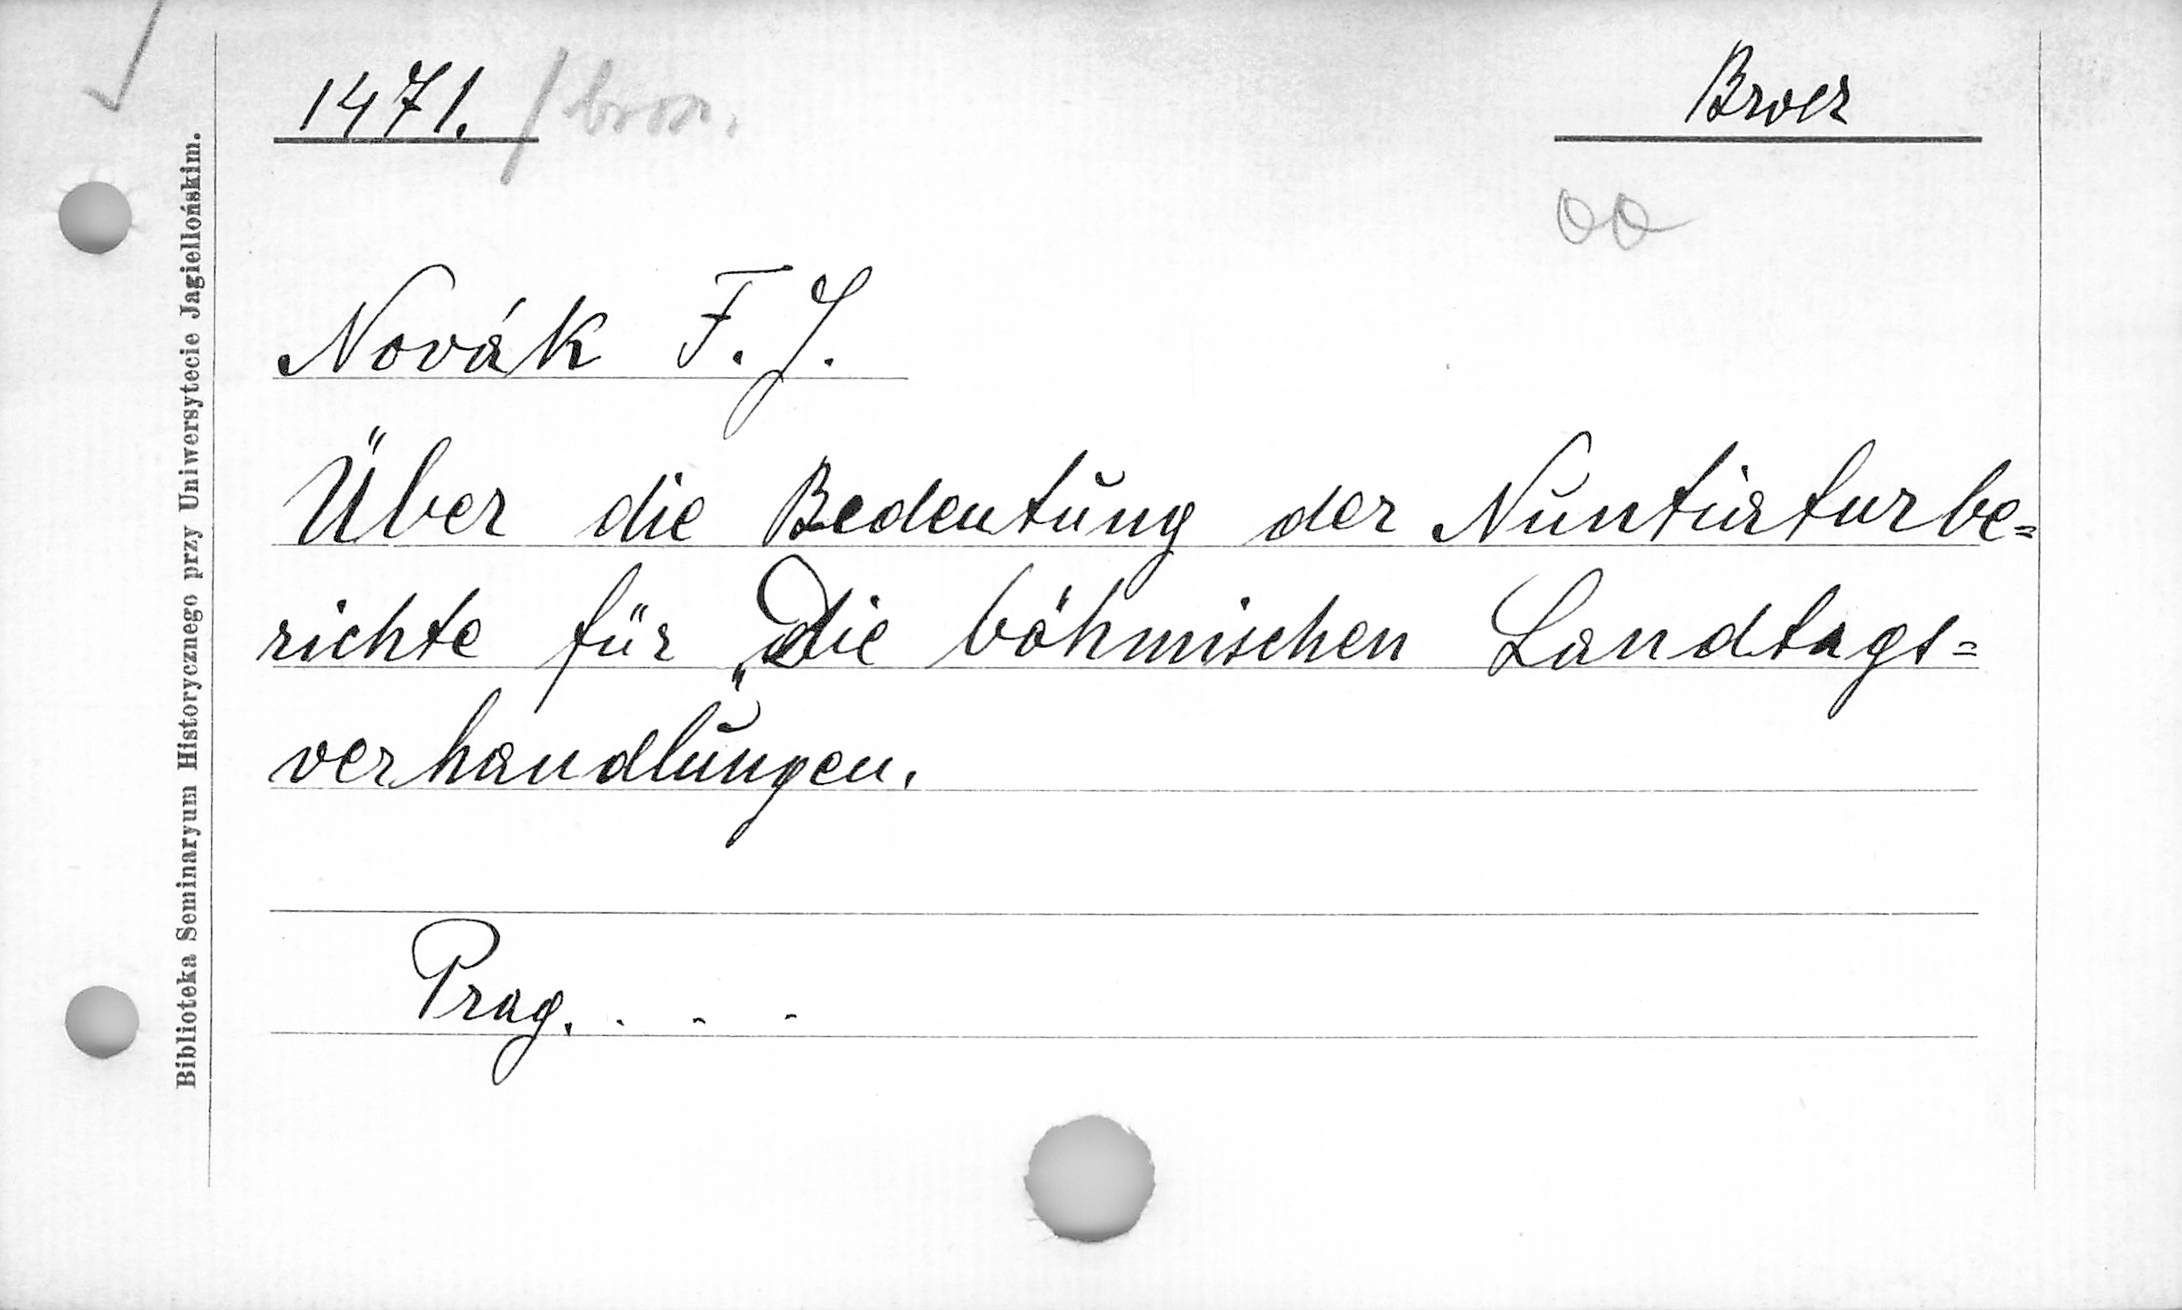 1471. / bros.
Brosz
Novák F. J.
Über die Bedeutung der Nuntiaturbe=
richte für „Die böhmischen Landtags=
verhandlungen.
Prag. . . .
Biblioteka Seminaryum Historycznego przy Uniwersytecie Jagiellońskim.